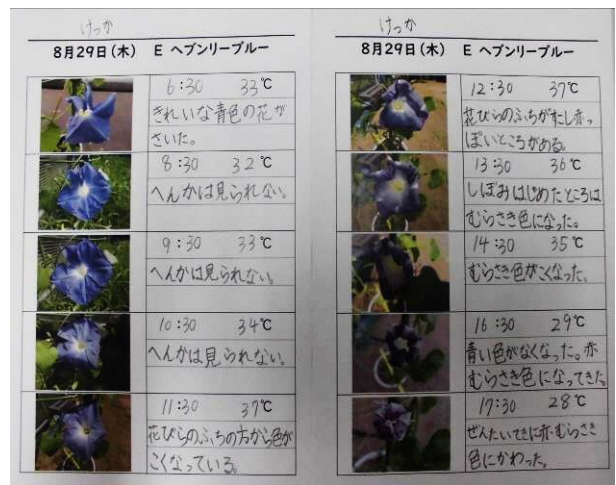 けっか
8月29日(木) E ヘブンリーブルー
6:30 33℃
きれいな青色の花が
さいた。
8:30 32℃
へんかは見られない。
9:30 33℃
へんかは見られない。
10:30 34℃
へんかは見られない。
11:30 37℃
花びらのふちの方から色が
こくなっている。
けっか
8月29日(木) E ヘブンリーブルー
12:30 37℃
花びらのふちがすこし赤っ
ぽいところがある。
13:30 36℃
しぼみはじめたところは
むらさき色になった。
14:30 35℃
むらさき色がこくなった。
16:30 29℃
青い色がなくなった。赤
むらさき色になってきた
17:30 28℃
ぜんたいてきに赤むらさき
色にかわった。